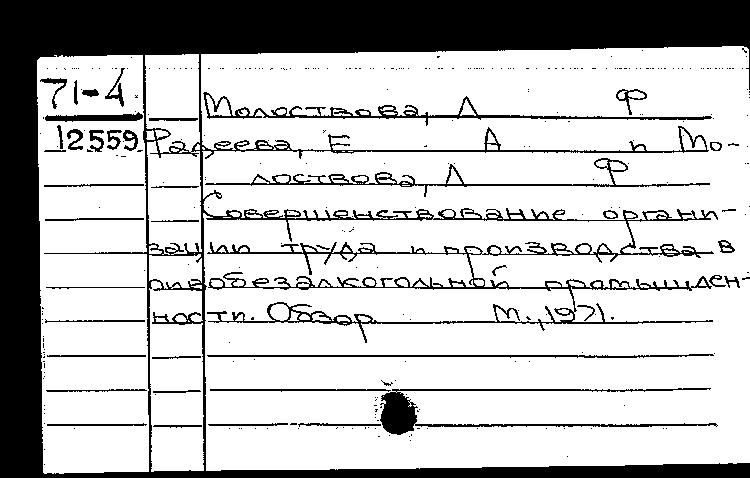 71-4
12559
Молоствова, Л Ф
Фадеева, Е А и Мо-
лоствова, Л Ф
Совершенствование органи-
зации труда и производства в
пивобезалкогольной промышлен-
ности. Обзор М., 1971.